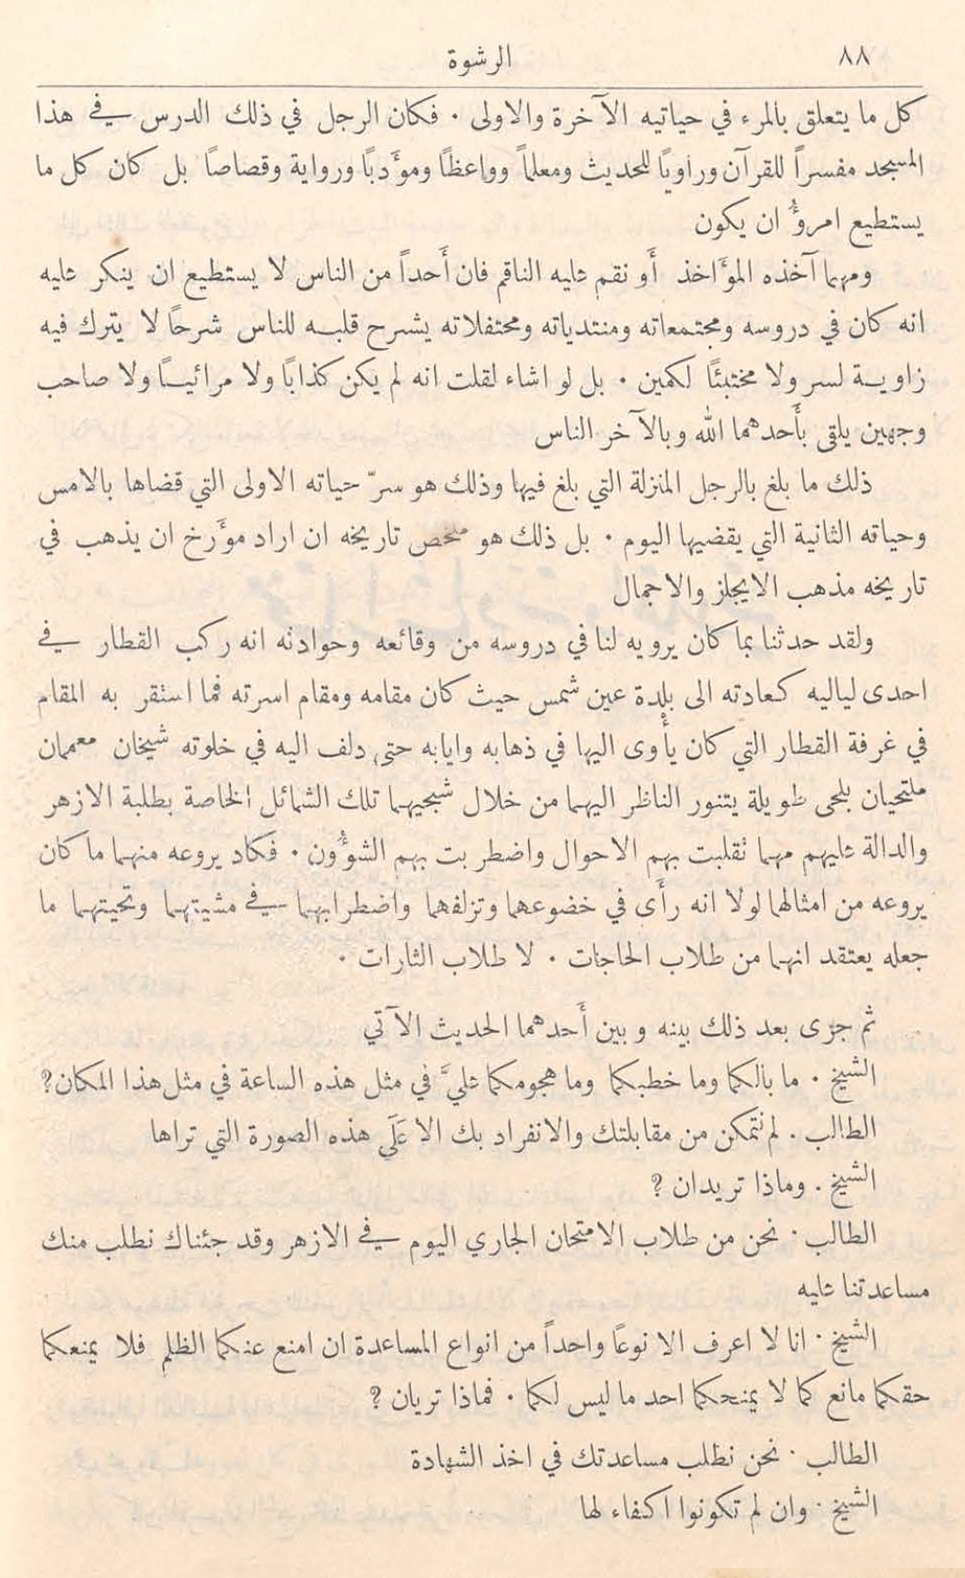 ٨٨
الرشوة
كل ما يتعلق بالمرء في حياتيه الآخرة والاولى . فكان الرجل في ذلك الدرس في هذا
المسجد مفسراً للقرآن وراوياً للحديث ومعلماً وواعظاً ومؤدباً ورواية وقصاصاً بل كان كل ما
يستطيع امرؤ ان يكون
ومهما آخذه المؤاخذ أو نقم عليه الناقم فان أحداً من الناس لا يستطيع ان ينكر عليه
انه كان في دروسه ومجتمعاته ومنتدياته ومحتفلاته يشرح قلبه للناس شرحاً لا يترك فيه
زاوية لسر ولا مختبئاً لكمين . بل لو اشاء لقلت انه لم يكن كذاباً ولا مرائياً ولا صاحب
وجهين يلقى بأحدهما الله وبالآخر الناس
ذلك ما بلغ بالرجل المنزلة التي بلغ فيها وذلك هو سرّ حياته الاولى التي قضاها بالامس
وحياته الثانية التي يقضيها اليوم . بل ذلك هو ملخص تاريخه ان اراد مؤرخ ان يذهب في
تاريخه مذهب الايجاز والاجمال
ولقد حدثنا بما كان يرويه لنا في دروسه من وقائعه وحوادثه انه ركب القطار في
احدى لياليه كعادته الى بلدة عين شمس حيث كان مقامه ومقام اسرته فما استقر به المقام
في غرفة القطار التي كان يأوى اليها في ذهابه وايابه حتى دلف اليه في خلوته شيخان معممان
ملتحيان بلحى طويلة يتنور الناظر اليهما من خلال شبحيهما تلك الشمائل الخاصة بطلبة الازهر
والدالة عليهم مهما تقلبت بهم الاحوال واضطربت بهم الشؤون . فكاد يروعه منهما ما كان
يروعه من امثالهما لولا انه رأى في خضوعهما وتزلفهما واضطرابهما في مشيتهما وتحيتهما ما
جعله يعتقد انهما من طلاب الحاجات . لا طلاب الثارات .
ثم جرى بعد ذلك بينه وبين أحدهما الحديث الآتي
الشيخ . ما بالكما وما خطبكما وما هجومكما عليَّ في مثل هذه الساعة في مثل هذا المكان؟
الطالب . لم نتمكن من مقابلتك والانفراد بك الا عَلَى هذه الصورة التي تراها
الشيخ . وماذا تريدان ؟
الطالب . نحن من طلاب الامتحان الجاري اليوم في الازهر وقد جئناك نطلب منك
مساعدتنا عليه
الشيخ . انا لا اعرف الا نوعاً واحداً من انواع المساعدة ان امنع عنكما الظلم فلا يمنعكما
حقكما مانع كما لا يمنحكما احد ما ليس لكما . فماذا تريان ؟
الطالب . نحن نطلب مساعدتك في اخذ الشهادة
الشيخ . وان لم تكونوا اكفاء لها